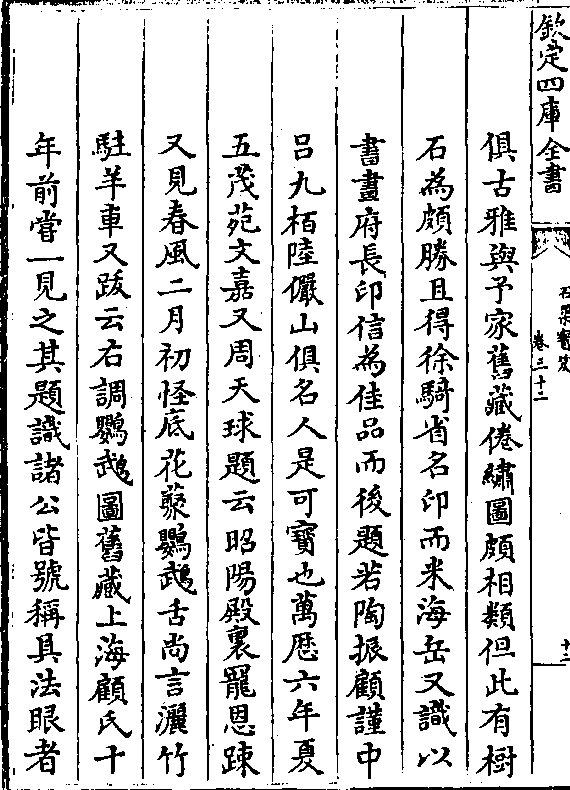 欽定四庫全書
石渠寳笈
卷三十二
十二
俱古雅與予家舊藏倦繡圖頗相類但此有樹
石為頗勝且得徐騎省名印而米海岳又識以
書畫府長印信為佳品而後題若陶振顧謹中
吕九栢陸儼山俱名人是可寳也萬厯六年夏
五茂苑文嘉又周天球題云昭陽殿裏寵恩踈
又見春風二月初怪底花蔡鸚鵡舌尚言灑竹
駐羊車又跋云右調鸚鵡圖舊藏上海顧氏十
年前嘗一見之其題識諸公皆號稱具法眼者